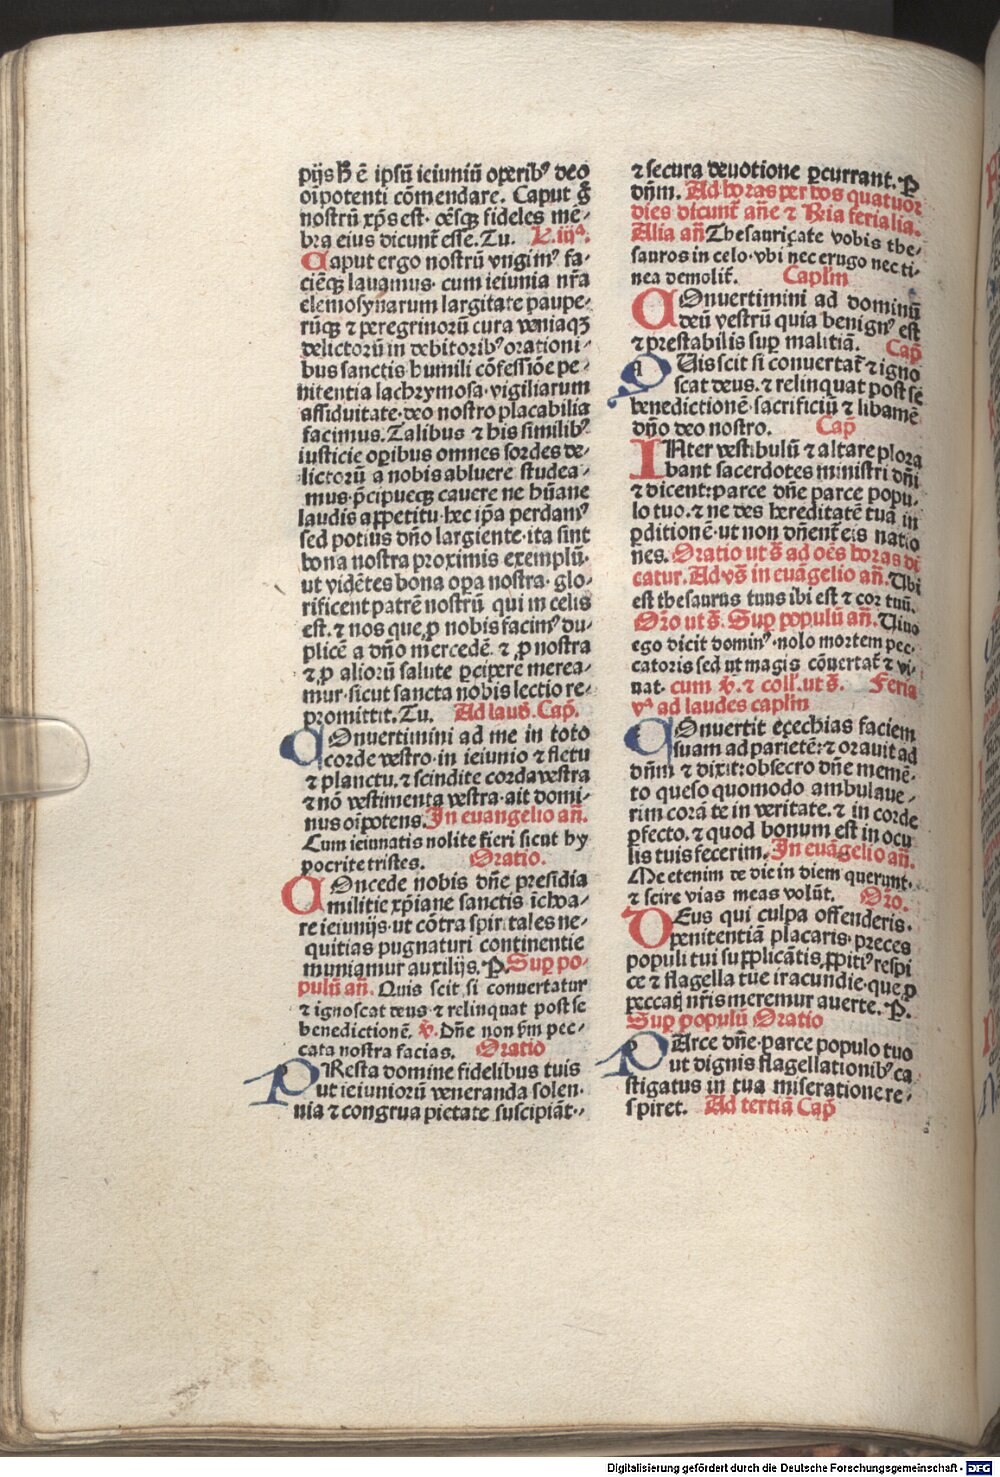 pijs hͦ ē ipsū ieiuniū operibꝰ deo
oīpotenti cōmendare. Caput ḡ
nostrū xp̄s est. oēsqꝫ fideles mē-
bra eius dicunt̄ esse. Tu. L. iijª.
Caput ergo nostrū vngimꝰ fa-
ciēqꝫ lauamus. cum ieiunia nr̄a
elemosynarum largitate paupe-
rūqꝫ ⁊ peregrinorū cura veniaqꝫ
delictorū in debitoribꝰ orationi-
bus sanctis humili cōfessiōe pe-
nitentia lachrymosa. vigiliarum
assiduitate. deo nostro placabilia
facimus. Talibus ⁊ his similibꝰ
iusticie oꝑibus omnes sordes de-
lictorū a nobis abluere studea-
mus. p̄cipueqꝫ cauere ne hūane
laudis aꝑpetitu. hec ip̄a perdamꝰ
sed potius dn̄o largiente. ita sint
bona nostra proximis exemplū.
ut vidētes bona oꝑa nostra. glo-
rificent patrē nostrū qui in celis
est. ⁊ nos que ꝓ nobis facimꝰ du-
plicē a dn̄o mercedē. ⁊ ꝓ nostra
⁊ ꝓ aliorū salute ꝑcipere merea-
mur. sicut sancta nobis lectio re-
promittit. Tu. Ad laud̄. Cap̄.
COnuertimini ad me in toto
corde vestro. in ieiunio ⁊ fletu
⁊ planctu. ⁊ scindite corda vestra
⁊ nō vestimenta vestra. ait domi-
nus oīpotens. In euangelio an̄.
Cum ieiunatis nolite fieri sicut hy
pocrite tristes. Oratio.
COncede nobis dn̄e presidia
militie xp̄iane sanctis īchoa-
re ieiunijs. ut cōtra spiritales ne-
quitias pugnaturi continentie
muniamur auxilijs. P. Suꝑ po-
pulū an̄. Quis scit si conuertatur
⁊ ignoscat deus. ⁊ relinquat post se
benedictionē. v̄. Dn̄e non s̄m pec-
cata nostra facias. Oratio
PResta domine fidelibus tuis
ut ieiuniorū veneranda solen-
nia ⁊ congrua pietate suscipiāt.
⁊ secura deuotione ꝑcurrant. P
dn̄m. Ad horas per hos quatuor
dies dicunt̄ an̄e ⁊ R̄ria ferialia.
Alia an̄ Thesauriçate vobis the-
sauros in celo. vbi nec erugo nec ti-
nea demolit̄. Caplm̄
COnuertimini ad dominū
deū vestrū quia benignꝰ est
⁊ prestabilis suꝑ malitiā. Cap̄
QUis scit si conuertat̄ ⁊ igno
scat deus. ⁊ relinquat post se
benedictionē. sacrificiū ⁊ libamē
dn̄o deo nostro. Cap̄
INter vestibulū ⁊ altare plora
bant sacerdotes ministri dn̄i
⁊ dicent: parce dn̄e parce popu-
lo tuo. ⁊ ne des hereditatē tuā in
ꝑditionē. ut non dn̄ent̄ eis natio
nes. Oratio ut s̄ ad oēs horas dī
catur. Ad vs̄ in euāgelio an̄. Ubi
est thesaurus tuus ibi est ⁊ cor tuū.
Or̄o ut s̄. Suꝑ populū an̄. Uiuo
ego dicit dominꝰ. nolo mortem pec-
catoris sed ut magis cōuertat̄ ⁊ vi-
uat. cum v̄. ⁊ coll̄. ut s̄. Feria
vª ad laudes caplm̄
COnuertit eçechias faciem
suam ad parietē: ⁊ orauit ad
dn̄m ⁊ dixit: obsecro dn̄e memē-
to queso quomodo ambulaue-
rim corā te in veritate. ⁊ in corde
ꝑfecto. ⁊ quod bonum est in ocu
lis tuis fecerim. In euāgelio an̄.
Me etenim de die in diem querunt.
⁊ scire vias meas volūt. Or̄o.
DEus qui culpa offenderis.
penitentiā placaris. preces
populi tui supplicātis ꝓpitiꝰ respi
ce ⁊ flagella tue iracundie. que ꝓ
peccatꝭ nr̄is meremur auerte. P.
Suꝑ populū Oratio
PArce dn̄e. parce populo tuo
ut dignis flagellationibꝰ ca
stigatus in tua miseratione re-
spiret. Ad tertiā Cap̄
Digitalisierung gefördert durch die Deutsche Forschungsgemeinschaft - DFG